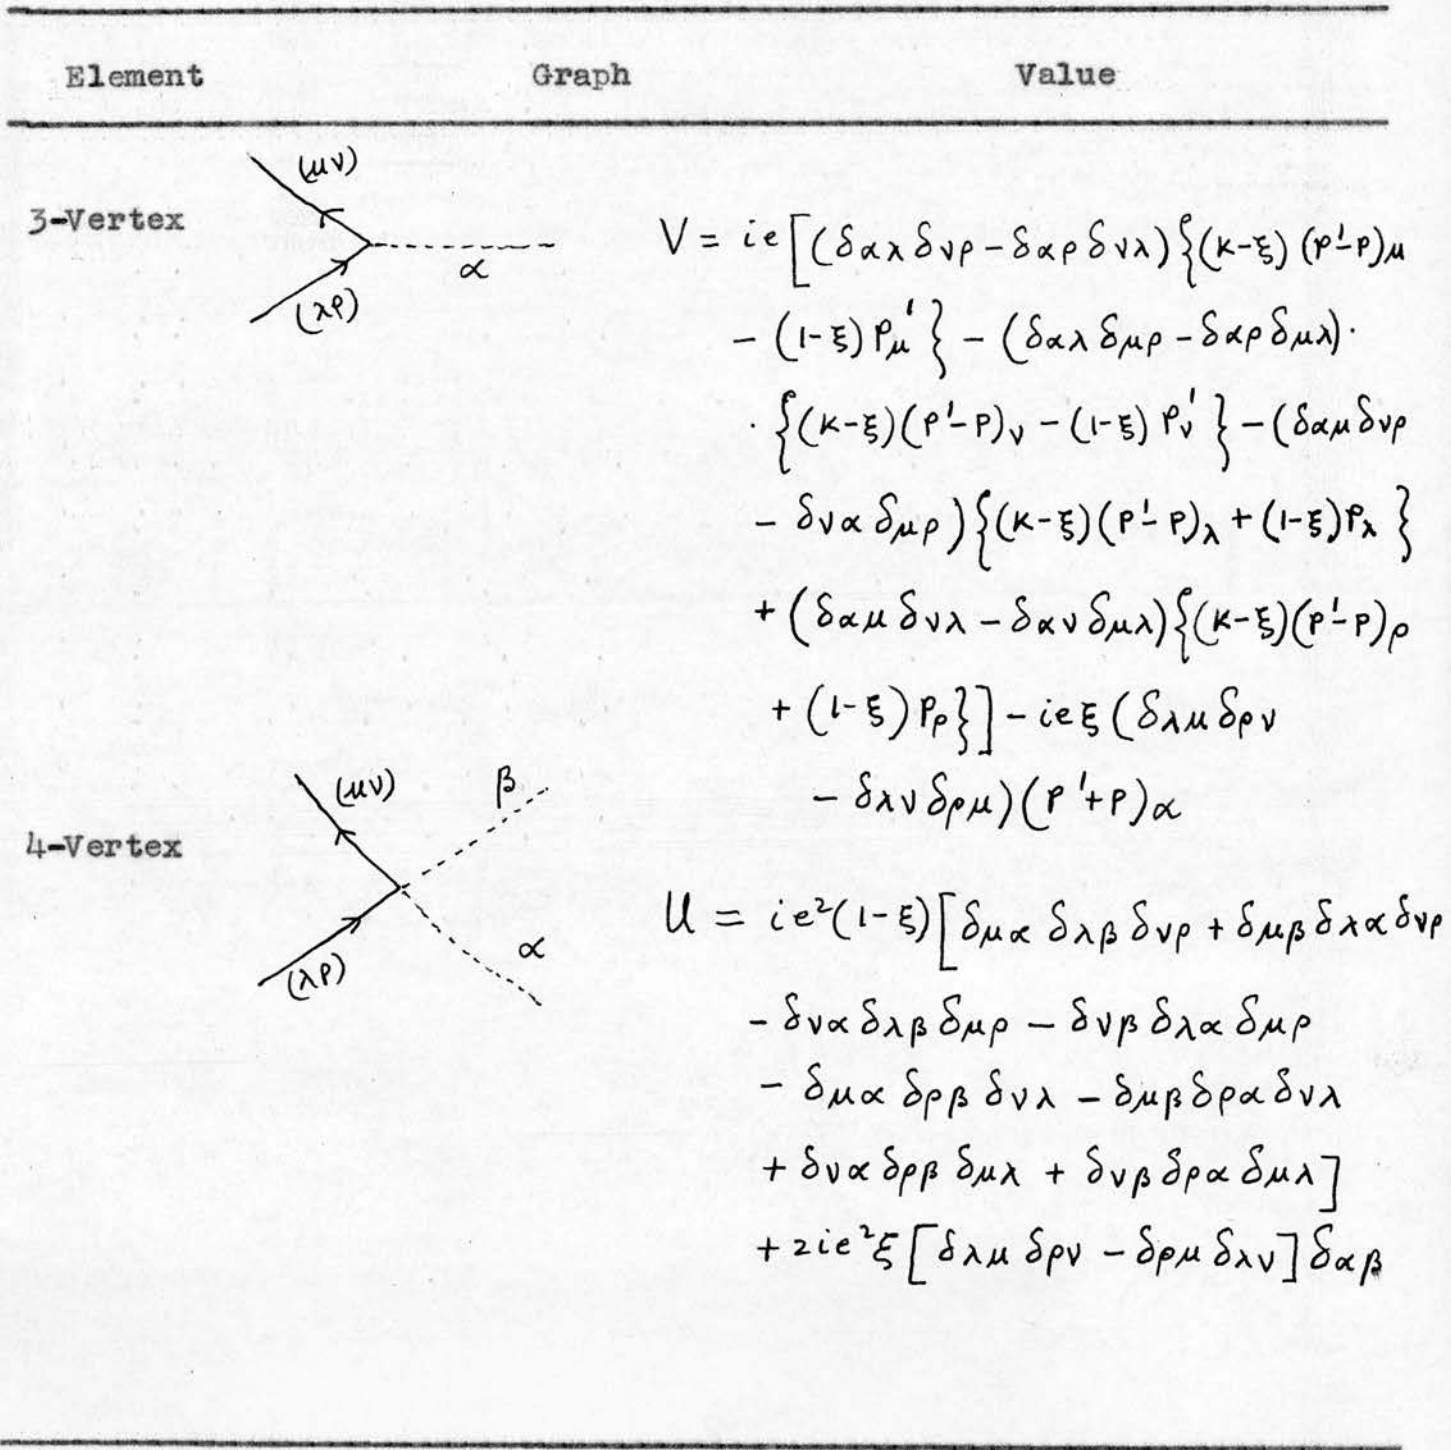 Element Graph Value
(μν)
3-Vertex
α
(λρ)
V = ie[(δαλ δνρ − δαρ δνλ){(κ-ξ) (p'-p)μ
− (1-ξ) pμ' } − (δαλ δμρ − δαρ δμλ)·
· {(κ-ξ)(p'-p)ν − (1-ξ) pν' } − (δαμ δνρ
− δνα δμρ){(κ-ξ)(p'-p)λ + (1-ξ)pλ }
+ (δαμ δνλ − δαν δμλ){(κ-ξ)(p'-p)ρ
+ (1-ξ) pρ}] − ieξ (δλμ δρν
− δλν δρμ)(p'+p)α
(μν) β
4-Vertex
α
(λρ)
U = ie²(1-ξ)[δμα δλβ δνρ + δμβ δλα δνρ
− δνα δλβ δμρ − δνβ δλα δμρ
− δμα δρβ δνλ − δμβ δρα δνλ
+ δνα δρβ δμλ + δνβ δρα δμλ]
+ 2ie²ξ [δλμ δρν − δρμ δλν] δαβ